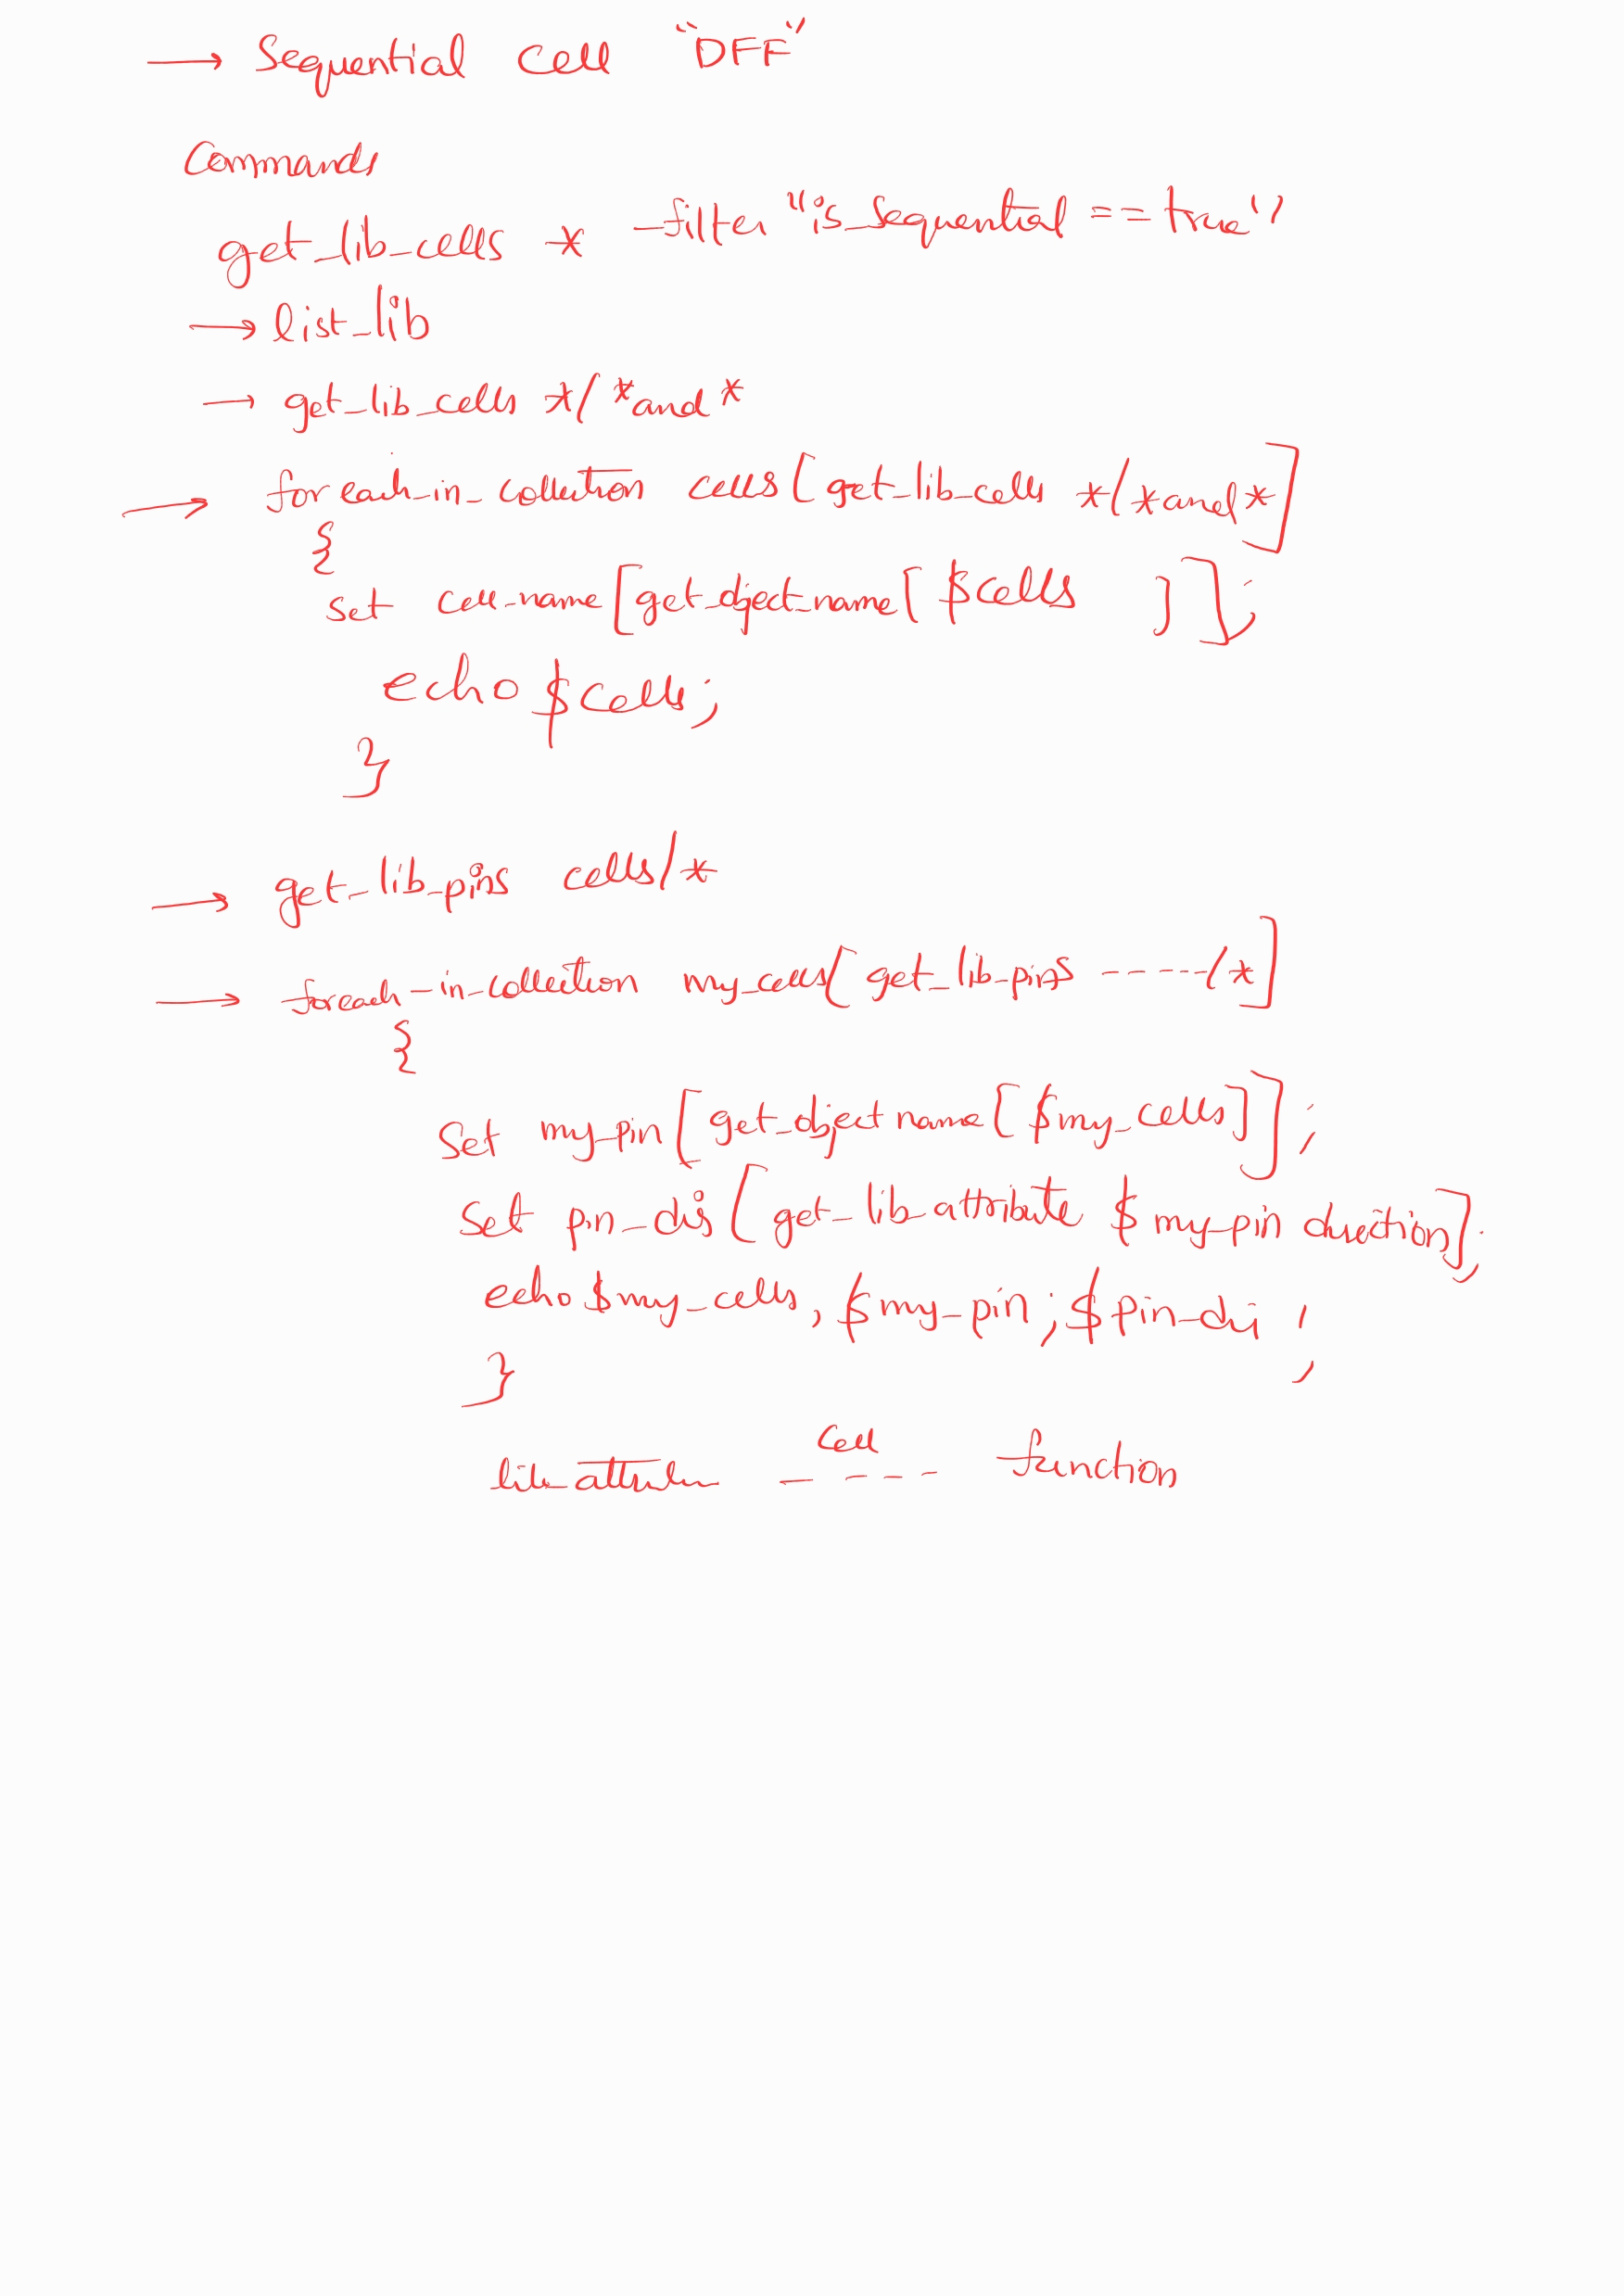 → Sequential cell "DFF"
Commands
get_lib_cells * -filter "is_sequential == true"
→ list_lib
→ get_lib_cells */*and*
→ foreach_in_collection cells [get_lib_cells */*and*]
{
set cell_name [get_object_name [$cells]];
echo $cells;
}
→ get_lib_pins cells/*
→ foreach-in-collection my_cells [get_lib_pins -----/*]
{
Set my_pin [get_object name [$my_cells]];
Set pin_dis [get_lib_attribute $my_pin direction];
echo $my_cells, $my_pin; $pin_di ;
}
Cell
---- function